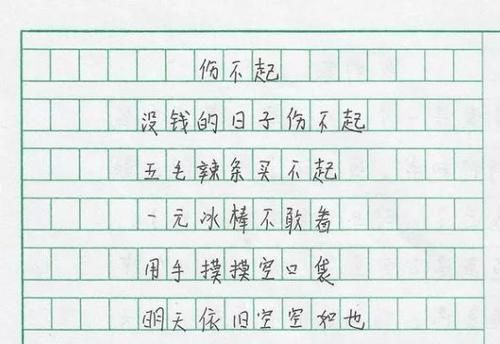 伤不起
没钱的日子伤不起
五毛辣条买不起
一元冰棒不敢看
用手摸摸空口袋
明天依旧空空如也